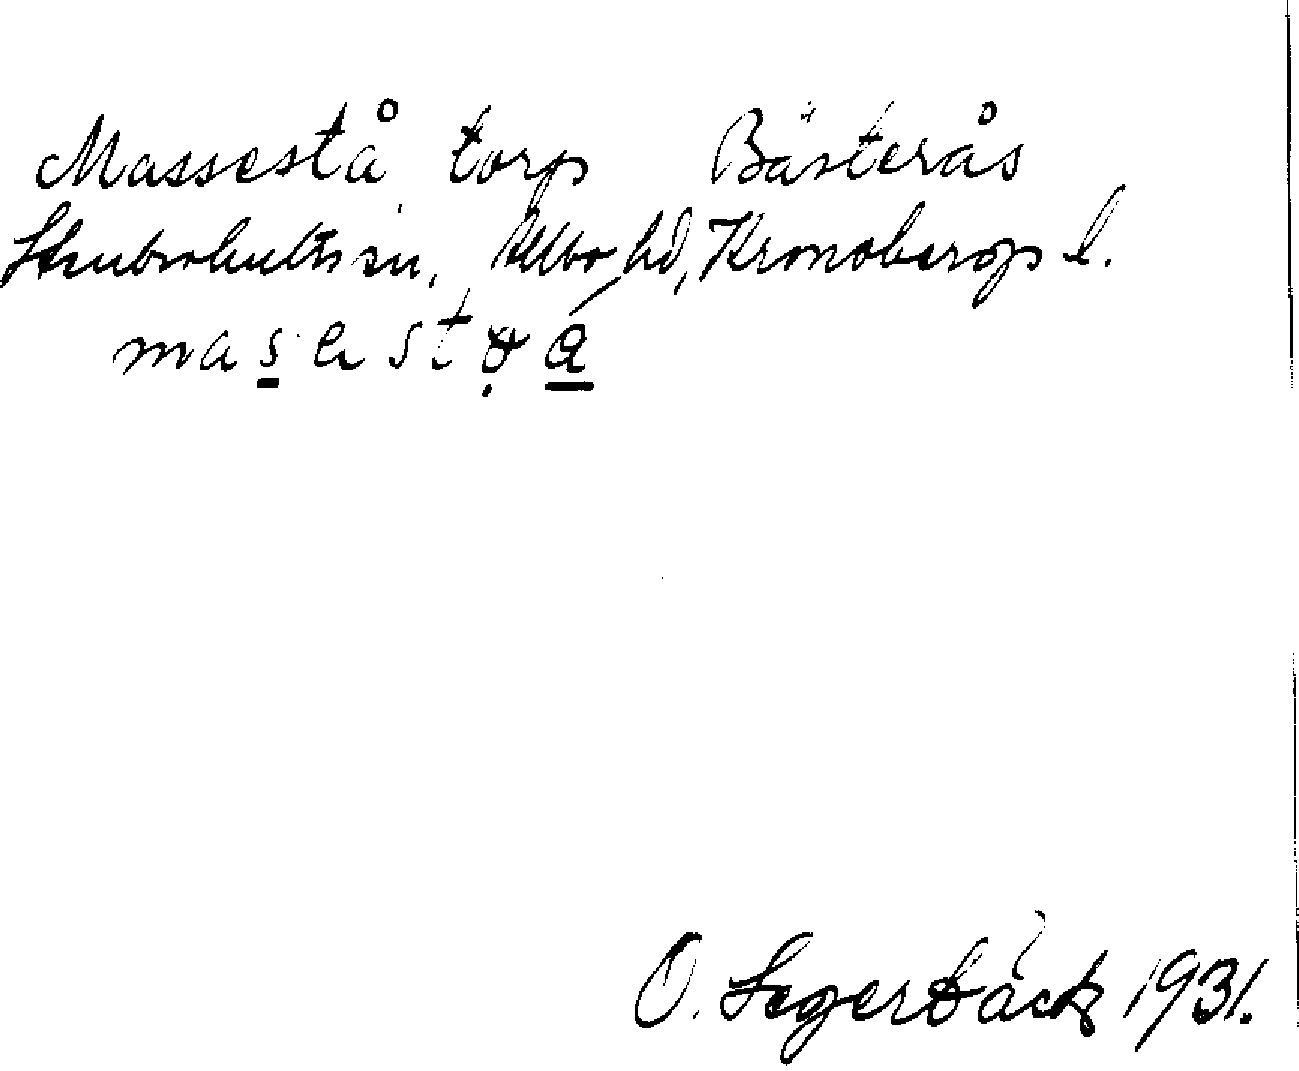 Massestå torp Bästerås
Stenbrohults sn, Allbo hd, Kronobergs l.
O. Segerbäck 1931.